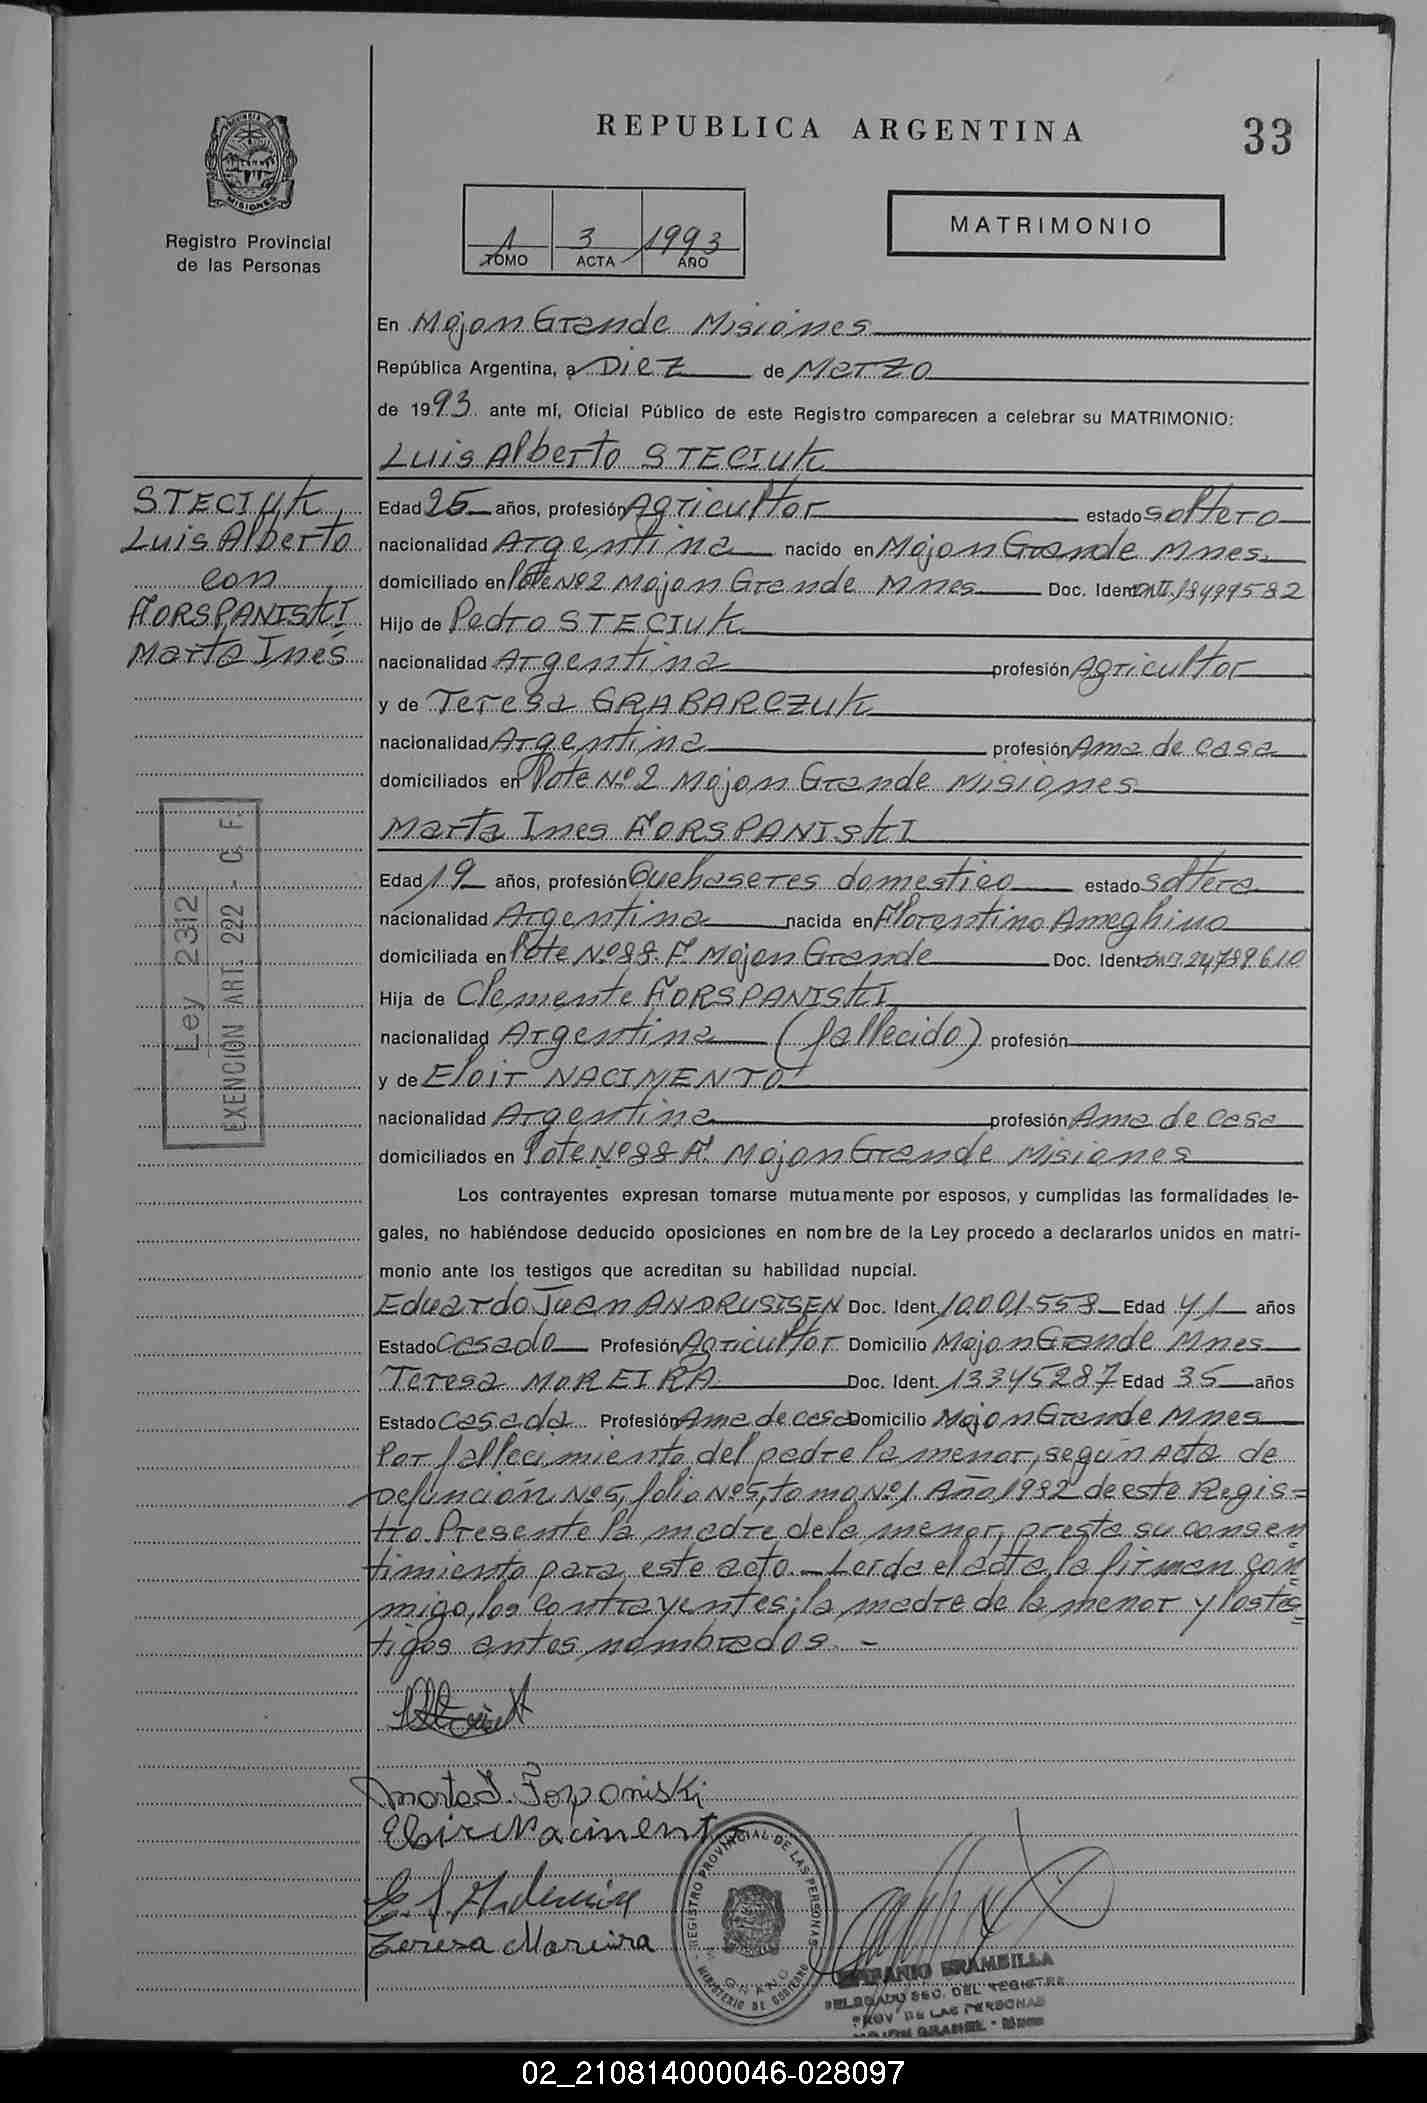 REPUBLICA ARGENTINA
33
MISIONES
Registro Provincial
de las Personas
1 3 1993
TOMO ACTA AÑO
MATRIMONIO
En Mojon Grande Misiones
República Argentina, a Diez de Marzo
de 1993 ante mí, Oficial Público de este Registro comparecen a celebrar su MATRIMONIO:
Luis Alberto STECIUK
STECIUK
Luis Alberto
con
FORSPANISKI
Marta Inés
Ley 23312
EXENCION ART. 222 - C. F.
Edad 25 años, profesión Agricultor estado soltero
nacionalidad Argentina nacido en Mojon Grande Mnes.
domiciliado en Lote Nº2 Mojon Grande Mnes Doc. Ident.
Hijo de Pedro STECIUK
nacionalidad Argentina profesión Agricultor
y de Teresa GRABARCZUK
nacionalidad Argentina profesión Ama de casa
domiciliados en Lote Nº2 Mojon Grande Misiones
Marta Ines FORSPANISKI
Edad 19 años, profesión Quehaseres domestico estado soltera
nacionalidad Argentina nacida en Florentino Ameghino
domiciliada en Lote Nº88 Mojon Grande Doc. Ident. 24789610
Hija de Clemente FORSPANISKI
nacionalidad Argentina (fallecido) profesión
y de Eloir NACIMENTO
nacionalidad Argentina profesión Ama de casa
domiciliados en Lote Nº88 Mojon Grande Misiones
Los contrayentes expresan tomarse mutuamente por esposos, y cumplidas las formalidades le-
gales, no habiéndose deducido oposiciones en nombre de la Ley procedo a declararlos unidos en matri-
monio ante los testigos que acreditan su habilidad nupcial.
Eduardo Juan ANDRUSISEN Doc. Ident. 10.001.558 Edad 41 años
Estado Casado Profesión Agricultor Domicilio Mojon Grande Mnes
Teresa MOREIRA Doc. Ident. 13345287 Edad 35 años
Estado Casada Profesión Ama de casa Domicilio Mojon Grande Mnes
Por fallecimiento del padre la menor, según Acta de
Defunción Nº5, folio Nº5, tomo Nº1 Año 1982 de este Regis=
tro. Presente la madre de la menor, presta su consen
timiento para este acto.- Leida el acta, la firman con=
migo, los contrayentes; la madre de la menor y los tes=
tigos antes nombrados. -
Marta I. Forpaniski
Eloir Nacimento
Teresa Moreira
REGISTRO PROVINCIAL DE LAS PERSONAS
MINISTERIO DE GOBIERNO
BRAMBILLA
DELEGADO SEC. DEL REGISTRO
PROV DE LAS PERSONAS
MOJON GRANDE - Misiones
02_210814000046-028097